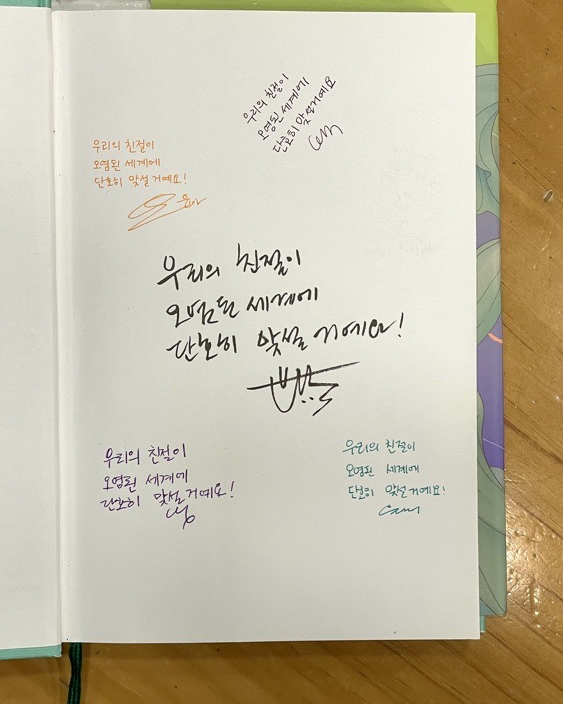 우리의 친절이
오염된 세계에
단호히 맞설거예요
우리의 친절이
오염된 세계에
단호히 맞설 거예요!
우리의 친절이
오염된 세계에
단호히 맞설 거예요!
우리의 친절이
오염된 세계에
단호히 맞설 거예요!
우리의 친절이
오염된 세계에
단호히 맞설 거예요!